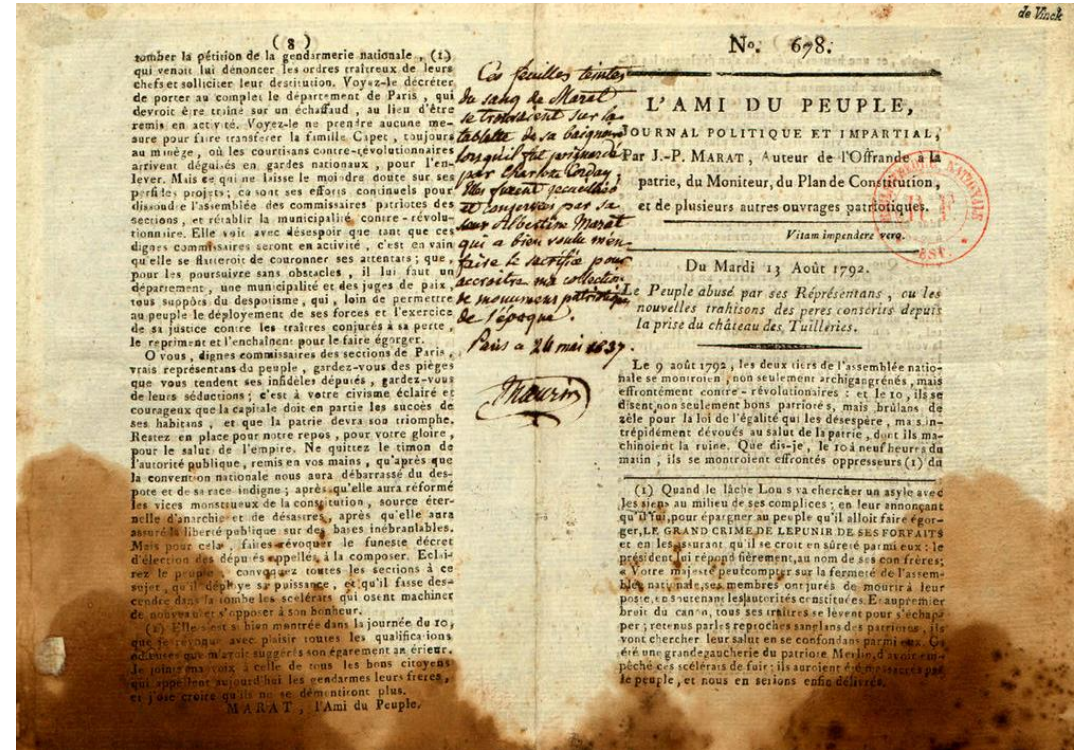 de Vinck
( 8 )
tomber la pétition de la gendarmerie nationale, (1)
qui venoit lui dénoncer les ordres traîtreux de leurs
chefs et solliciter leur destitution. Voyez-le décréter
de porter au complet le département de Paris, qui
devroit être traîné sur un échaffaud, au lieu d'être
remis en activité. Voyez-le ne prendre aucune me-
sure pour faire transférer la famille Capet, toujours
au minège, où les courtisans contre-révolutionnaires
arrivent déguisés en gardes nationaux, pour l'en-
lever. Mais ce qui ne laisse le moindre doute sur ses
perfides projets; ce sont ses efforts continuels pour
dissoudre l'assemblée des commissaires patriotes des
sections, et rétablir la municipalité contre-révolu-
tionnaire. Elle voit avec désespoir que tant que ces
dignes commissaires seront en activité, c'est en vain
qu'elle se flatteroit de couronner ses attentats; que,
pour les poursuivre sans obstacles, il lui faut un
département, une municipalité et des juges de paix,
tous suppôts du despotisme, qui, loin de permettre
au peuple le déployement de ses forces et l'exercice
de sa justice contre les traîtres conjurés à sa perte,
le repriment et l'enchaînent pour le faire égorger.
O vous, dignes commissaires des sections de Paris,
vrais représentans du peuple, gardez-vous des pièges
que vous tendent ses infidèles députés, gardez-vous
de leurs séductions; c'est à votre civisme éclairé et
courageux que la capitale doit en partie les succès de
ses habitans, et que la patrie devra son triomphe.
Restez en place pour notre repos, pour votre gloire,
pour le salut de l'empire. Ne quittez le timon de
l'autorité publique, remis en vos mains, qu'après que
la convention nationale nous aura débarrassé du des-
pote et de sa race indigne; après qu'elle aura réformé
les vices monstrueux de la constitution, source éter-
nelle d'anarchie et de désastres, après qu'elle aura
assuré la liberté publique sur des bases inébranlables.
Mais pour cela, faites révoquer le funeste décret
d'élection des députés appellés à la composer. Eclai-
rez le peuple, convoquez toutes les sections à ce
sujet, qu'il déploye sa puissance, et qu'il fasse des-
cendre dans la tombe les scélérats qui osent machiner
de nouveau et s'opposer à son bonheur.
(1) Elle s'est si bien montrée dans la journée du 10,
que je révoque avec plaisir toutes les qualifications
odieuses que m'avoit suggérés son égarement antérieur.
Je joins ma voix à celle de tous les bons citoyens
qui appellent aujourd'hui les gendarmes leurs frères,
et j'ose croire qu'ils ne se démentiront plus.
MARAT, l'Ami du Peuple.
Ces feuilles teintes
du sang de Marat
se trouvoient sur la
tablette de sa baignoire
lorsqu'il fut poignardé
par Charlotte Corday;
elles furent recueillies
et conservées par sa
sœur Albertine Marat
qui a bien voulu m'en
faire le sacrifice pour
accroitre ma collection
de monumens patriotiques
de l'époque.
Paris ce 24 mai 1837.
Maurin
No. 678.
L'AMI DU PEUPLE,
JOURNAL POLITIQUE ET IMPARTIAL,
Par J.-P. MARAT, Auteur de l'Offrande à la
patrie, du Moniteur, du Plan de Constitution,
et de plusieurs autres ouvrages patriotiques.
NATIONALE
R F
EST.
Vitam impendere vero.
Du Mardi 13 Août 1792.
Le Peuple abusé par ses Réprésentans, ou les
nouvelles trahisons des peres conscrits depuis
la prise du château des Tuilleries.
Le 9 août 1792, les deux tiers de l'assemblée natio-
nale se montroient, non seulement archigangrénés, mais
effrontément contre-révolutionaires : et le 10, ils se
disent, non seulement bons patriotes, mais brûlans de
zèle pour la loi de l'égalité qui les désespère, mais in-
trépidement dévoués au salut de la patrie, dont ils ma-
chinoient la ruine. Que dis-je, le 10 à neuf heures du
matin, ils se montroient effrontés oppresseurs (1) du
(1) Quand le lâche Louis va chercher un asyle avec
les siens au milieu de ses complices; en leur annonçant
qu'il fui, pour épargner au peuple qu'il alloit faire égor-
ger, LE GRAND CRIME DE LE PUNIR DE SES FORFAITS
et en les assurant qu'il se croit en sûreté parmi eux : le
président lui répond fièrement, au nom de ses confrères;
« Votre majesté peut compter sur la fermeté de l'assem-
blée nationale, ses membres ont jurés de mourir à leur
poste, en soutenant les autorités constituées. Et au premier
bruit du canon, tous ses traîtres se lèvent pour s'échap-
per; retenus par les reproches sanglans des patriotes, ils
vont chercher leur salut en se confondans parmi eux. Ç'a
été une grande gaucherie du patriote Merlin, d'avoir em-
pêché ces scélerats de fuir; ils auroient été massacrés par
le peuple, et nous en serions enfin délivrés.